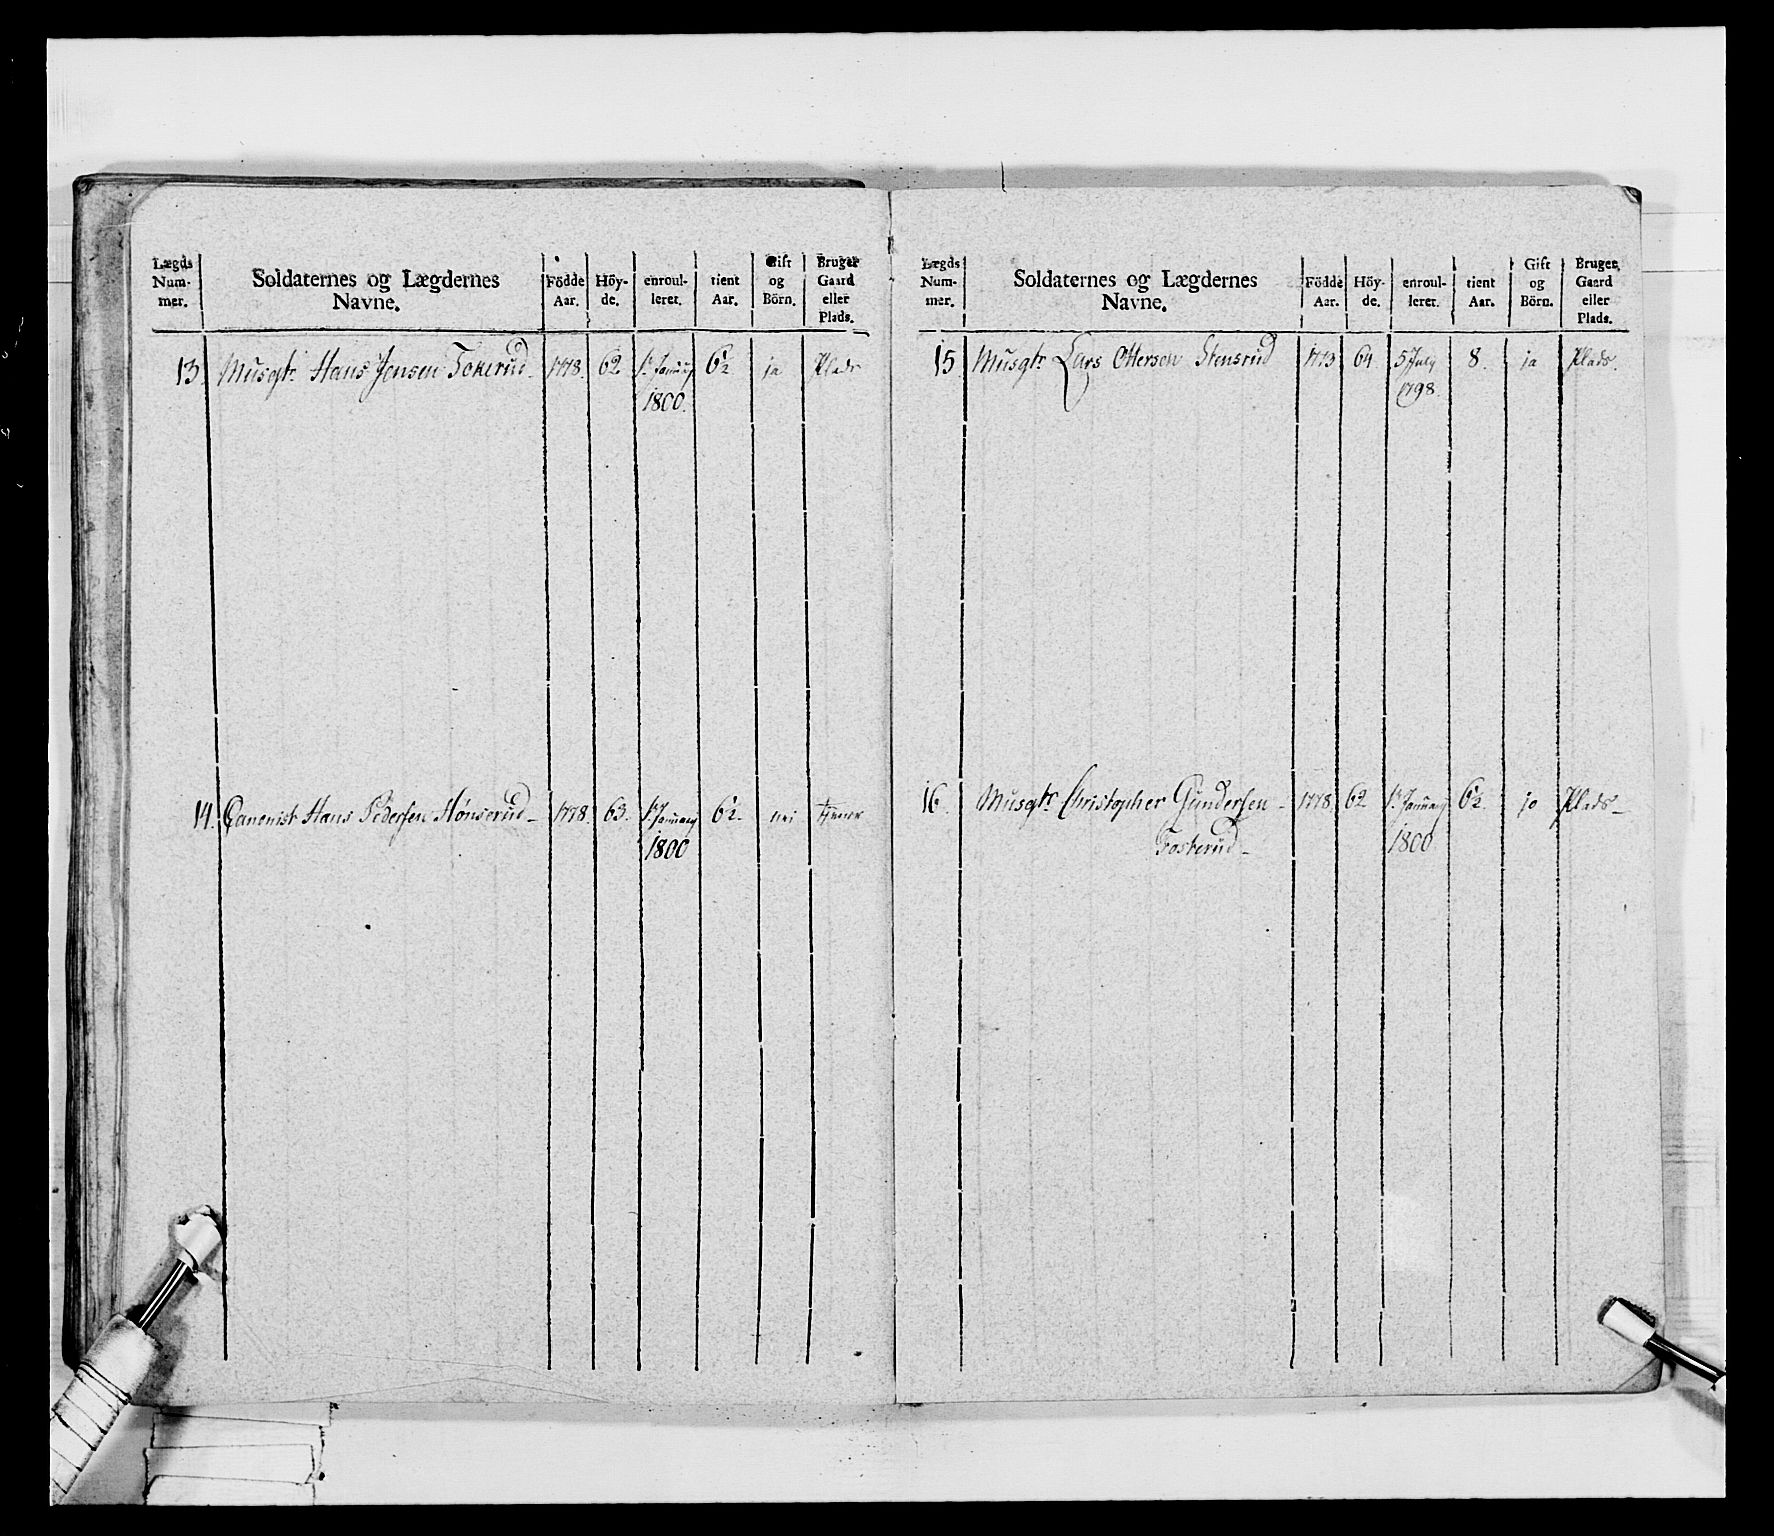 Lægds Num- mer. | Soldaternes og Lægdernes Navne. | Födde Aar. | Höy- de. | enroul- leret. | tient Aar. | Gift og Börn. | Bruger Gaard eller Plads.
13. Musqtr Hans Jensen Tokerud 1778. 62 1te Januay 6½ ja Plads
1800.
14. Canonist Hans Pedersen Hønserud 1778. 63. 1te January 6½ nei tiener
1800
Lægds Num- mer. | Soldaternes og Lægdernes Navne. | Födde Aar. | Höy- de. | enroul- leret. | tient Aar. | Gift og Börn. | Bruger, Gaard eller Plads.
15 Musqtr Lars Ottersen Stensrud 1773 64 5 July 8. ja Plads.
1798.
16. Musqtr Christopher Gundersen - 1778. 62 1te January 6½. ja Plads
Fosterud 1800